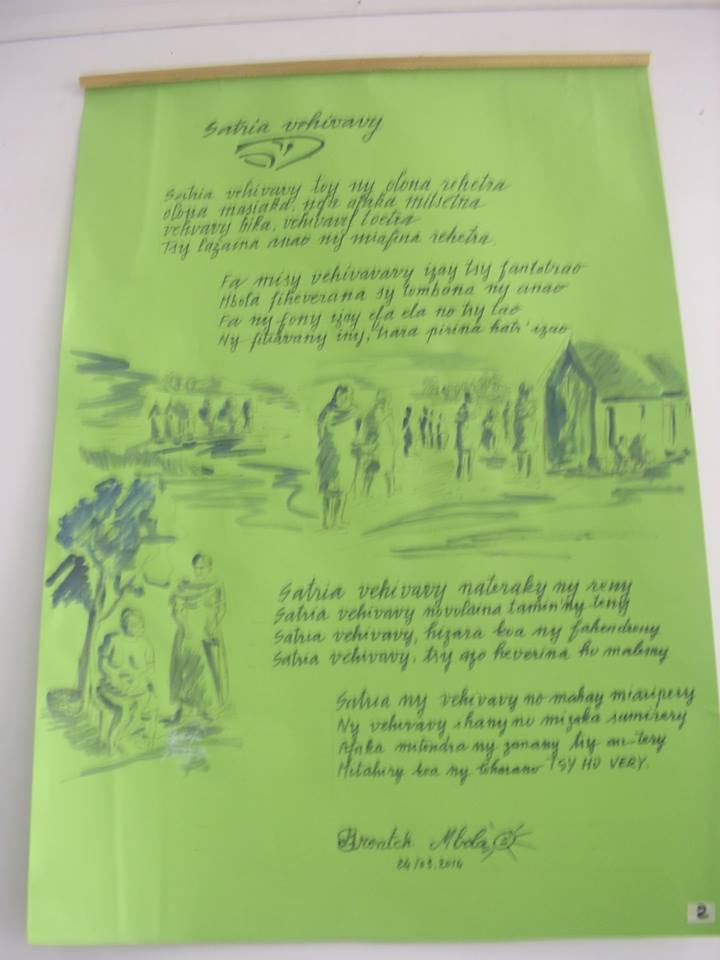 Satria vehivavy
Satria vehivavy toy ny olona rehetra
olona masiaka, nga afaka mitsetra
vehivavy bika, vehivavy toetra
Tsy lazaina anao ny miafina rehetra.
Fa misy vehivavavy izay tsy fantatrao
Mbola fiheverana sy tombana ny anao
Fa ny fony izay efa ela no tsy tao
Ny fitiavany iny, hatr'izao
Satria vehivavy nateraky ny reny
Satria vehivavy novolaina tamin'ny teny
Satria vehivavy, hizara koa ny fahendreny
Satria vehivavy, tsy azo heverina ho malemy
Satria ny vehivavy no mahay miaripery
Ny vehivavy ihany no mizaka samirery
Afaka mitondra ny zanany tsy an-tery
Mitahiry koa ny loharano TSY HO VERY.
Mbola
24/03.2014
2